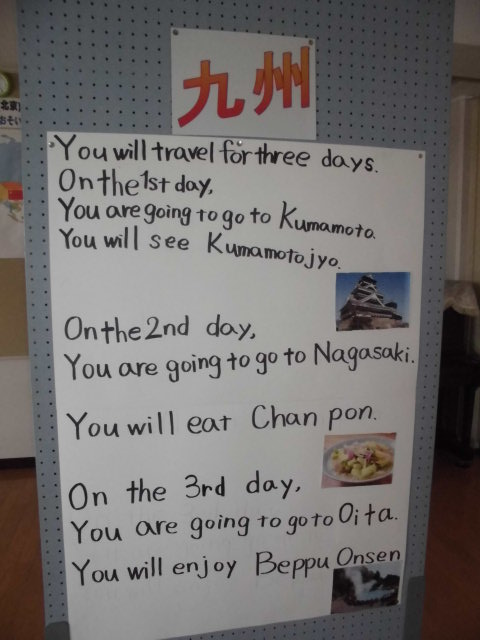 九州
北京
You will travel for three days.
On the 1st day,
You are going to go to Kumamoto.
You will see Kumamotojyo.
On the 2nd day,
You are going to go to Nagasaki.
You will eat Chan pon.
On the 3rd day,
You are going to go to Oita.
You will enjoy Beppu Onsen